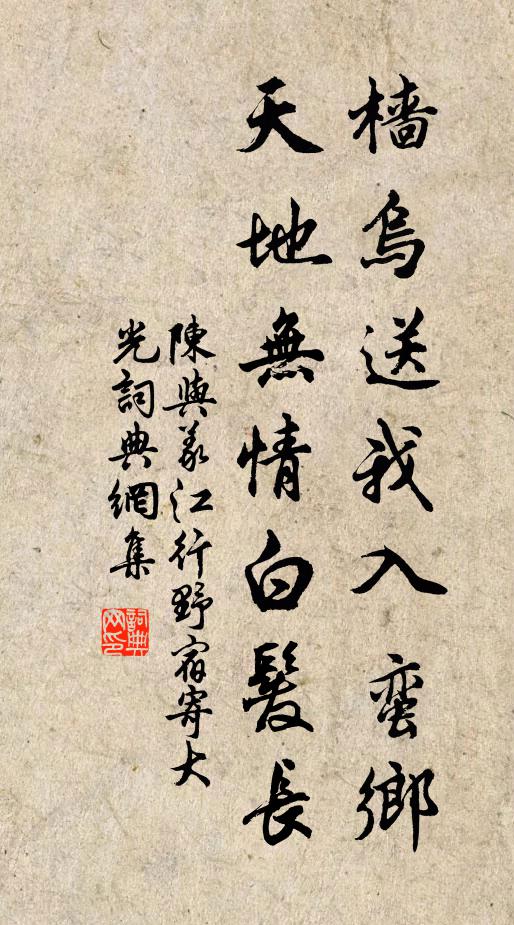 檣烏送我入蛮鄉
天地無情白髮長
陳與義江行野宿寄大
光詞典網集
詞典网印